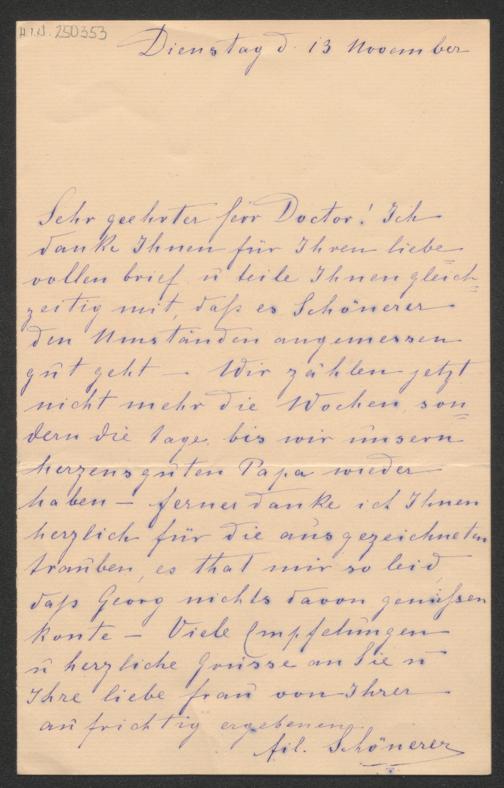 H.I.N. 250353
Dienstag d. 13 November
Sehr geehrter Herr Doctor! Ich
danke Ihnen für Ihren liebe
vollen brief u teile Ihnen gleich=
zeitig mit, daß es Schönerer
den Umständen angemessen
gut geht – Wir zählen jetzt
nicht mehr die Wochen, son=
dern die tage, bis wir unsern
herzensguten Papa wieder
haben – ferner danke ich Ihnen
herzlich für die ausgezeichneten
trauben, es that mir so leid,
daß Georg nichts davon genießen
konte – Viele Empfelungen
u herzliche Grüsse an Sie u
Ihre liebe frau von Ihrer
aufrichtig ergebenen
fil. Schönerer